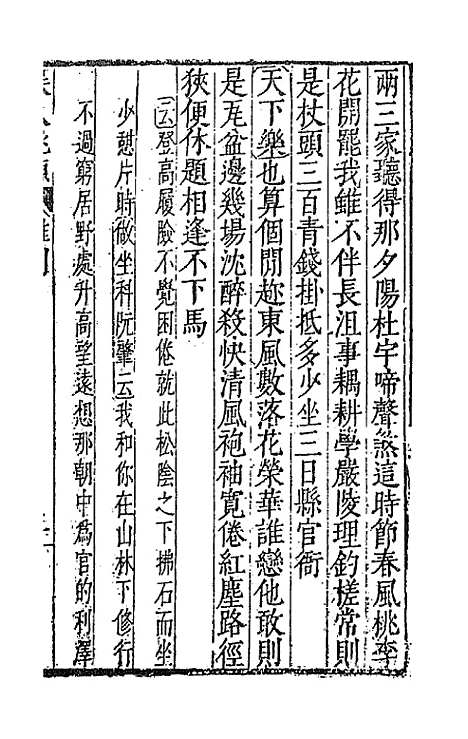 兩三家聽得那夕陽杜宇啼聲煞這時節春風桃李
花開罷我雖不伴長沮事耦耕學嚴陵理釣槎常則
是杖頭三百青錢掛抵多少坐三日縣官衙
天下樂也算個閒趂東風數落花榮華誰戀他敢則
是瓦盆邊幾塲沈醉殺快清風袍袖寬倦紅塵路徑
狹便休題相逢不下馬
云登高履險不覺困倦就此松陰之下拂石而坐
少憇片時做坐科阮肇云我和你在山林下修行
不過窮居野處升高望遠想那朝中爲官的利澤